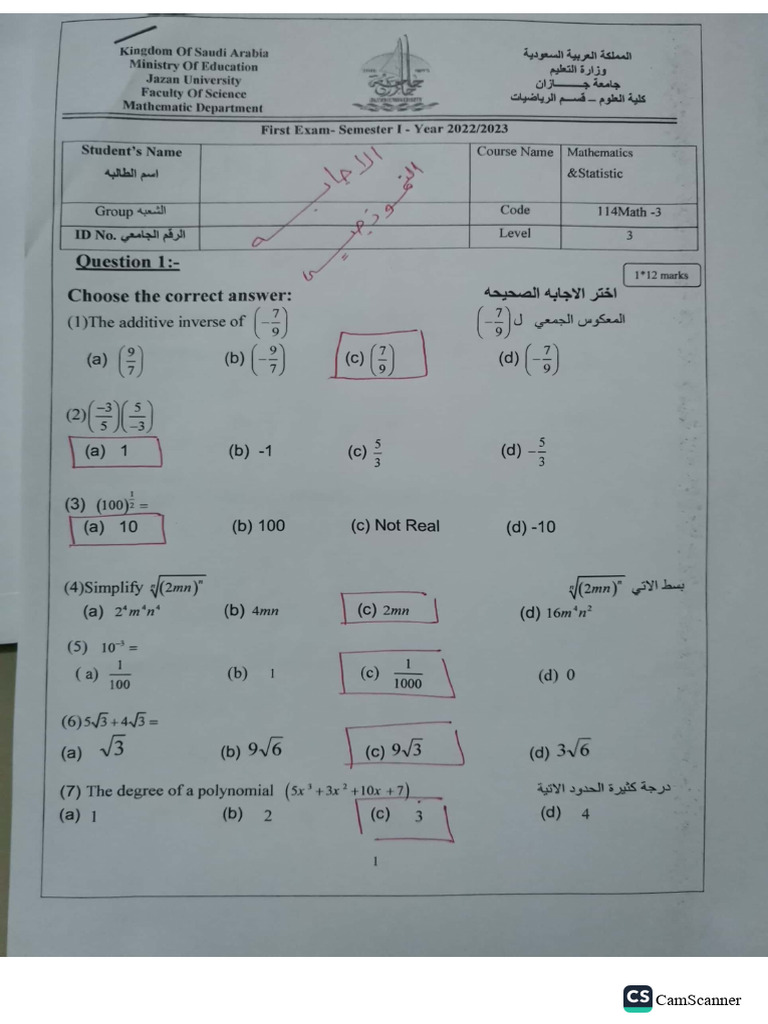 Kingdom Of Saudi Arabia
Ministry Of Education
Jazan University
Faculty Of Science
Mathematic Department
المملكة العربية السعودية
وزارة التعليم
جامعة جــــازان
كلية العلوم – قسم الرياضيات
First Exam- Semester I - Year 2022/2023
Student's Name
اسم الطالبه
Course Name
Mathematics
&Statistic
Group الشعبه
Code
114Math -3
ID No. الرقم الجامعي
Level
3
الاجابه
النموذجيه
Question 1:-
1*12 marks
Choose the correct answer: اختر الاجابه الصحيحه
(1)The additive inverse of (-7/9) المعكوس الجمعي ل (-7/9)
(a) (9/7) (b) (-9/7) (c) (7/9) (d) (-7/9)
(2)(-3/5)(5/-3)
(a) 1 (b) -1 (c) 5/3 (d) -5/3
(3) (100)^(1/2) =
(a) 10 (b) 100 (c) Not Real (d) -10
(4)Simplify ⁿ√(2mn)ⁿ بسط الاتي ⁿ√(2mn)ⁿ
(a) 2⁴m⁴n⁴ (b) 4mn (c) 2mn (d) 16m⁴n²
(5) 10⁻³ =
( a) 1/100 (b) 1 (c) 1/1000 (d) 0
(6)5√3+4√3 =
(a) √3 (b) 9√6 (c) 9√3 (d) 3√6
(7) The degree of a polynomial (5x³+3x²+10x+7) درجة كثيرة الحدود الاتية
(a) 1 (b) 2 (c) 3 (d) 4
1
CS CamScanner